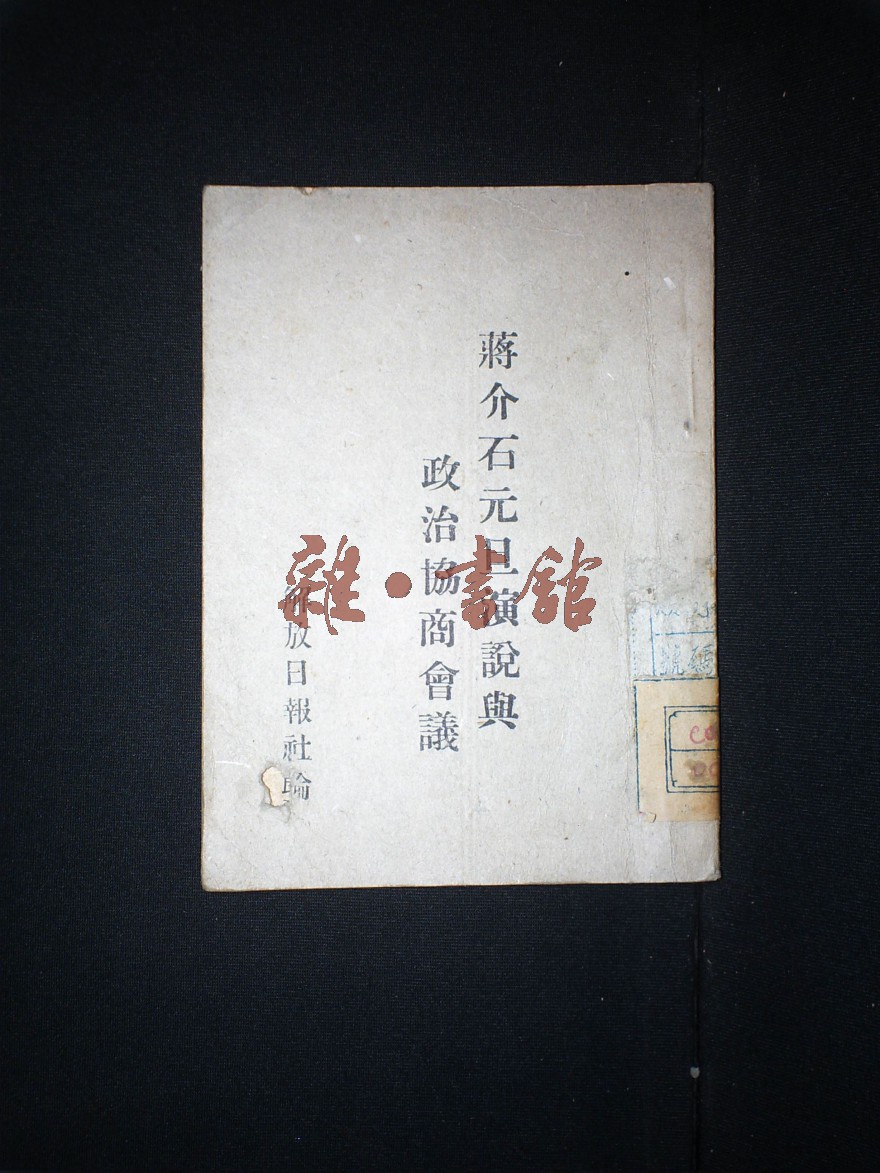 蔣介石元旦演說與
政治協商會議
解放日報社論
雜·書館
號碼